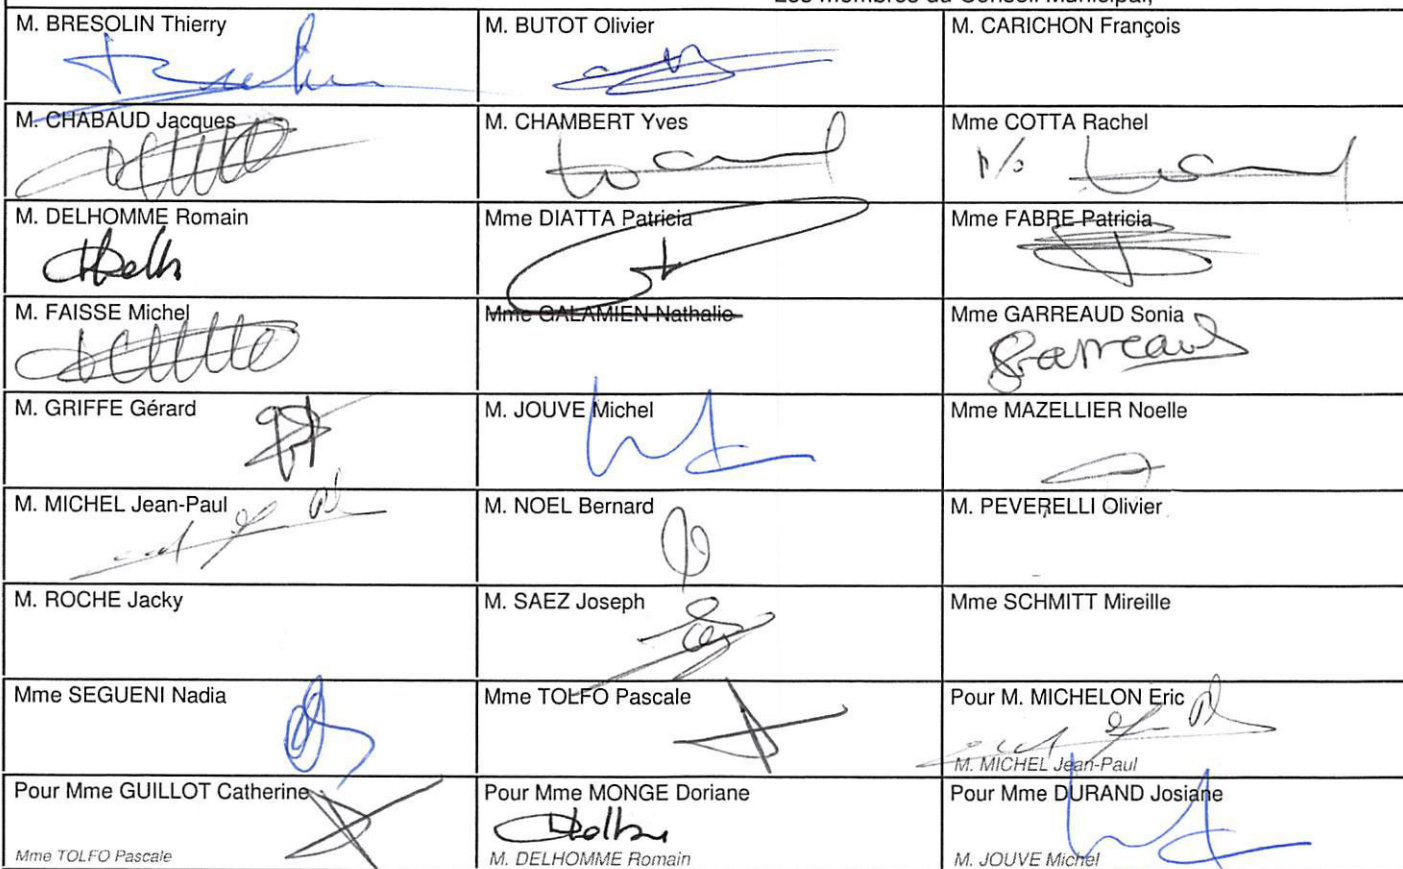 Les membres du Conseil Municipal,
M. BRESOLIN Thierry
M. BUTOT Olivier
M. CARICHON François
M. CHABAUD Jacques
M. CHAMBERT Yves
Mme COTTA Rachel
P/o
M. DELHOMME Romain
Mme DIATTA Patricia
Mme FABRE Patricia
M. FAISSE Michel
Mme GALAMIEN Nathalie
Mme GARREAUD Sonia
Garreaud
M. GRIFFE Gérard
M. JOUVE Michel
Mme MAZELLIER Noelle
M. MICHEL Jean-Paul
M. NOEL Bernard
M. PEVERELLI Olivier
M. ROCHE Jacky
M. SAEZ Joseph
Mme SCHMITT Mireille
Mme SEGUENI Nadia
Mme TOLFO Pascale
Pour M. MICHELON Eric
M. MICHEL Jean-Paul
Pour Mme GUILLOT Catherine
Mme TOLFO Pascale
Pour Mme MONGE Doriane
M. DELHOMME Romain
Pour Mme DURAND Josiane
M. JOUVE Michel